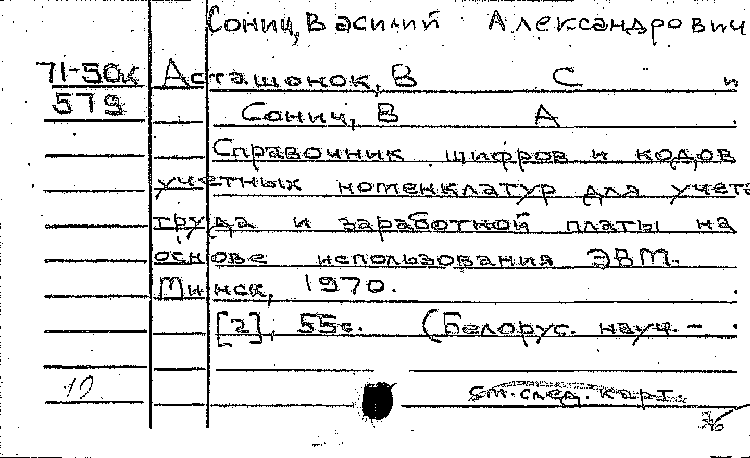 Сонич, Василий Александрович
71-50к Асташонок, В С и
579 Сонич, В А .
Справочник шифров и кодов
учетных номенклатур для учета
труда и заработной платы на
основе использования ЭВМ.
Минск, 1970.
[2], 55с. (Белорус. науч. –
см. след. карт.